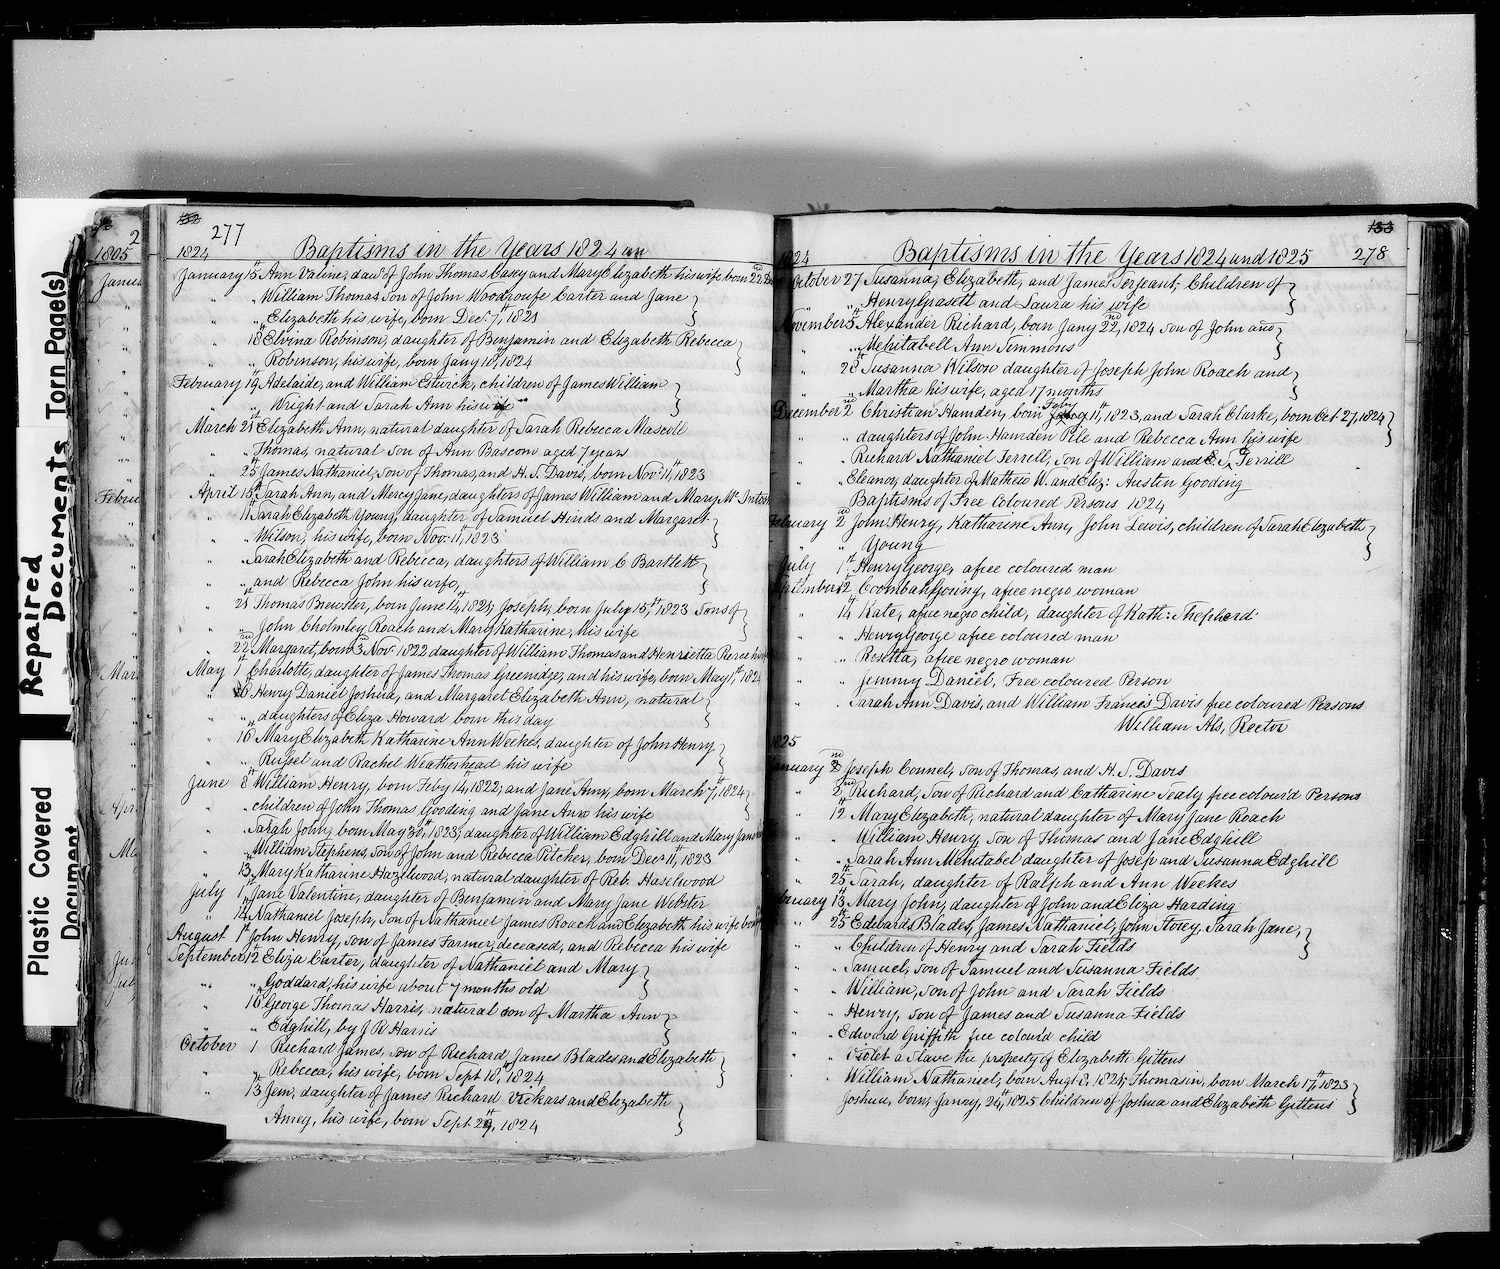 Repaired Documents Torn Page(s)
Plastic Covered Document
2
1805
Febru
Mar
Apr
132
277
1824 Baptisms in the Years 1824 an
January 5th Ann Valine, daur of John Thomas Casey and Mary Elizabeth his wife, born 22nd
" " William Thomas son of John Woodroufe Carter and Jane
" " Elizabeth his wife, born Decr 7th, 1821
" 18th Elvina Robinson, daughter of Benjamin and Elizabeth Rebecca
" " Robinson, his wife, born Jany 10th, 1824
February 19th Adelaide, and William Eturck, children of James William
" " Wright and Sarah Ann his wife
March 21st Elizabeth Ann, natural daughter of Sarah Rebecca Mascoll
" " Thomas, natural son of Ann Bascom aged 7 years
" 25 James Nathaniel, Son of Thomas, and H. S. Davis, born Novr 11th, 1823
April 15th Sarah Ann, and Mercy Jane, daughters of James William and Mary Mc Intosh
" 11th Sarah Elizabeth Young, daughter of Samuel Hinds and Margaret
" " Wilson, his wife, born Nov: 11th, 1823
" " Sarah Elizabeth and Rebecca, daughters of William C Bartlett
" " and Rebecca John his wife,
" 21st Thomas Brewster, born June 14th, 1821, Joseph, born July 15th, 1823 Sons of
" " John Cholmley Roach and Mary Katharine, his wife
" 22nd Margaret, born 3rd Nov. 1822 daughter of William Thomas and Henrietta Peirce his
May 1st Charlotte, daughter of James Thomas Greenidge, and his wife, born May 1st, 1824
" 6th Henry Daniel Joshua, and Margaret Elizabeth Ann, natural
" " daughters of Eliza Howard born this day
" 16th Mary Elizabeth Katharine Ann Weekes, daughter of John Henry
" " Russel and Rachel Weatherhead his wife
June 8th William Henry, born Feby 14th, 1822, and Jane Ann, born March 7th, 1824
" " children of John Thomas Gooding and Jane Ann his wife
" " Sarah John, born May 30th, 1823, daughter of William Edghill and Mary Jane
" " William Stephens, son of John and Rebecca Pitcher, born Decr 11th, 1823
" 13th Mary Katharine Hazelwood, natural daughter of Reb. Haselwood
July 1st Jane Valentine, daughter of Benjamin and Mary Jane Webster
" 14th Nathaniel Joseph, Son of Nathaniel James Roach and Elizabeth his wife born
August 1st John Henry, son of James Farmer, deceased, and Rebecca his wife
September 12th Eliza Carter, daughter of Nathaniel and Mary
" " Goddard, his wife about 7 months old
" 16th George Thomas Harris, natural son of Martha Ann
" " Edghill, by J R Harris
October 1 Richard James, son of Richard James Blades and Elizabeth
" " Rebecca, his wife, born Sept 18th, 1824
" 13th Jem, daughter of James Richard Vickars and Elizabeth
Amey, his wife, born Sept 29th, 1824
133
278
1824 Baptisms in the Years 1824 and 1825
October 27 Susanna, Elizabeth, and James Serjeant; Children of
" " Henry Grasett and Laura his wife
November 5th Alexander Richard, born Jany 22nd, 1824 son of John and
" " Mehitabell Ann Simmons
" 28th Susanna Wilson daughter of Joseph John Roach and
" " Martha his wife, aged 17 months
December 2nd Christian Hamden, born Feby 11th, 1823, and Sarah Clarke, born Oct 27, 1824
" " daughters of John Hamden Pile and Rebecca Ann his wife
" " Richard Nathaniel Terrell, son of William and E. S. Terrill
" " Eleanor, daughter of Mathew W. and Eliz: Austin Gooding
Baptisms of Free Coloured Persons 1824
February 2nd John Henry, Katharine Ann, John Lewis, children of Sarah Elizabeth
" " Young
July 1st Henry George, a free coloured man
September 12th Coombah Going, a free negro woman
" 14th Kate, a free negro child, daughter of Kath: Shepherd
" " Henry George a free coloured man
" " Rosetta, a free negro woman
" " Jemmy Daniel, Free coloured Person
" " Sarah Ann Davis, and William Frances Davis free coloured Persons
William Als, Rector
1825
January 2nd Joseph Connel, son of Thomas, and H. S. Davis
" 2nd Richard, Son of Richard and Catharine Sealy free colour'd Persons
" 12th Mary Elizabeth, natural daughter of Mary Jane Roach
" " William Henry, son of Thomas and Jane Edghill
" " Sarah Ann Mehitabel daughter of Josep and Susanna Edghill
" 25th Sarah, daughter of Ralph and Ann Weekes
February 13th Mary John, daughter of John and Eliza Harding
" 25th Edward Blades, James Nathaniel, John Storey, Sarah Jane,
" " Children of Henry and Sarah Fields
" " Samuel, son of Samuel and Susanna Fields
" " William, son of John and Sarah Fields
" " Henry, son of James and Susanna Fields
" " Edward Griffith free colour'd child
" " Violet a Slave the property of Elizabeth Gittens
" " William Nathaniel, born Augt 8, 1821, Thomasin, born March 17th, 1823
Joshua, born Janry, 24th, 1825 Children of Joshua and Elizabeth Gittens